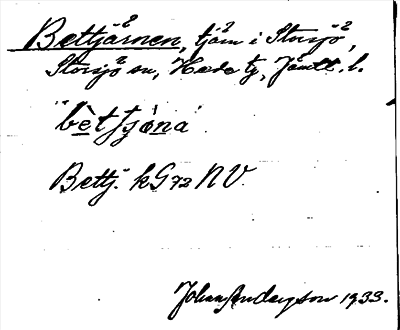 Bettjärnen, tjärn i Storsjö,
Storsjö sn, Härje tg, Jämtl. l.
"bètʃɔ̀na"
Bettj. kG 72 NV.
Johan Anderson 1933.